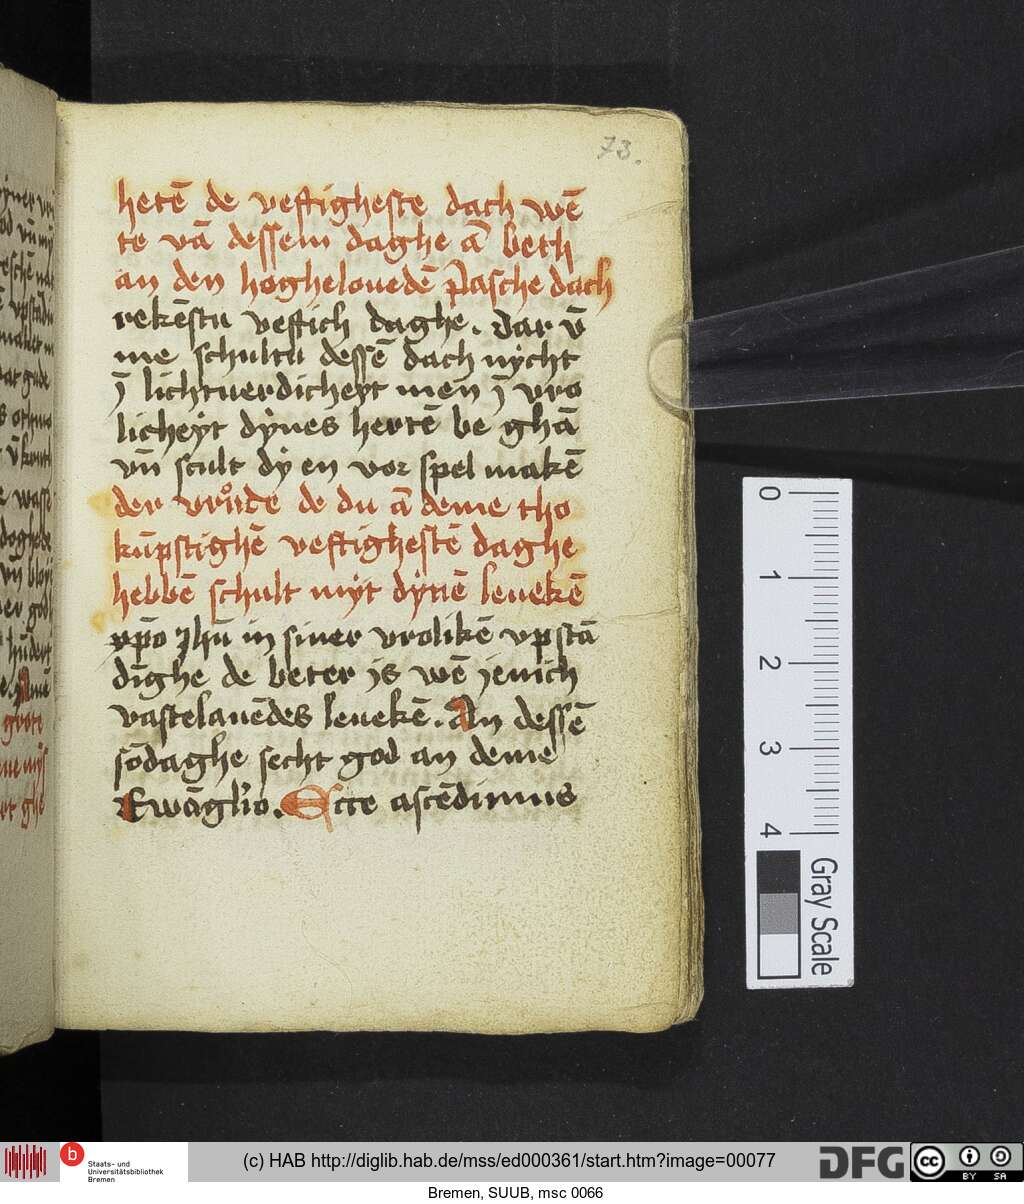 73.
hetē de veftigheste dach wē
te vā dessem daghe ā beth
an den hoghelouedē Pasche dach
rekēstu veftich daghe. Dar v̄
me schultu dessē dach nycht
ȳ lichtuerdicheyt men ȳ vro
licheyt dynes hertē be ghā
vn̄ scult dy en vor spel makē
der vroͤude de du ā deme tho
kūpstighē veftighestē daghe
hebbē schult myt dynē leuekē
xp̄o Jhū in siner vrolikē vpstā
dīghe de beter ys wē yenich
vastelauēdes leuekē. An dessē
sōdaghe secht god an deme
Ewāglio. Ecce ascēdimus
0
1
2
3
4
Gray Scale
b
Staats- und
Universitätsbibliothek
Bremen
(c) HAB http://diglib.hab.de/mss/ed000361/start.htm?image=00077
DFG
cc
BY SA
Bremen, SUUB, msc 0066